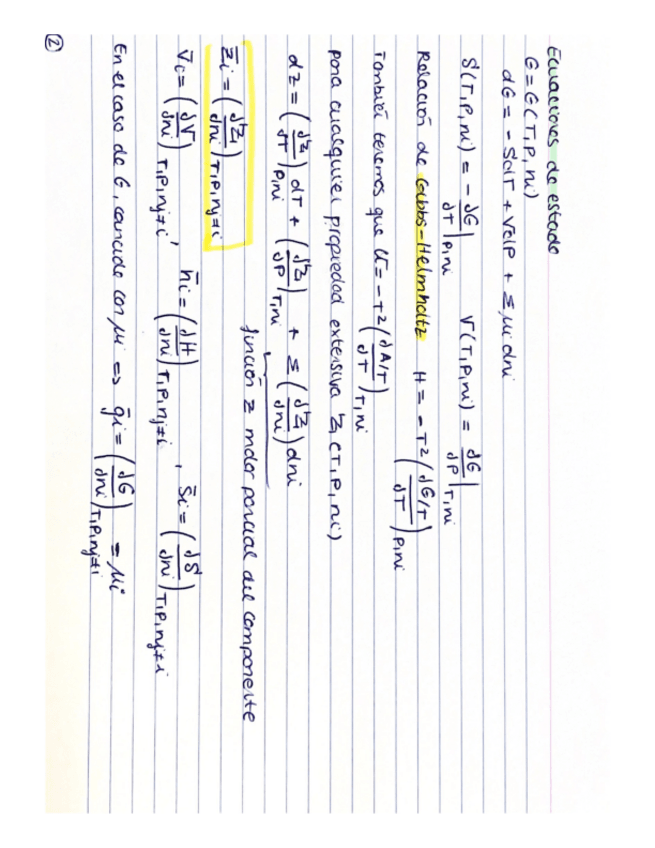 Ecuaciones de estado
G = G(T, P, ni)
dG = - SdT + VdP + Σ μi dni
S(T, P, ni) = - ∂G/∂T|P,ni    V(T, P, ni) = ∂G/∂P|T,ni
Relación de Gibbs-Helmholtz  H = - T² (∂G/T / ∂T)P,ni
También tenemos que U = - T² (∂A/T / ∂T)T,ni
para cualquier propiedad extensiva Z (T, P, ni)
dZ = (∂Z/∂T)P,ni dT + (∂Z/∂P)T,ni + Σ (∂Z/∂ni) dni
función Z molar parcial del componente
Z̄i = (∂Z/∂ni)T,P,nj≠i
V̄i = (∂V/∂ni)T,P,nj≠i , h̄i = (∂H/∂ni)T,P,nj≠i , S̄i = (∂S/∂ni)T,P,nj≠i
En el caso de G, coincide con μi => ḡi = (∂G/∂ni)T,P,nj≠i = μi
2